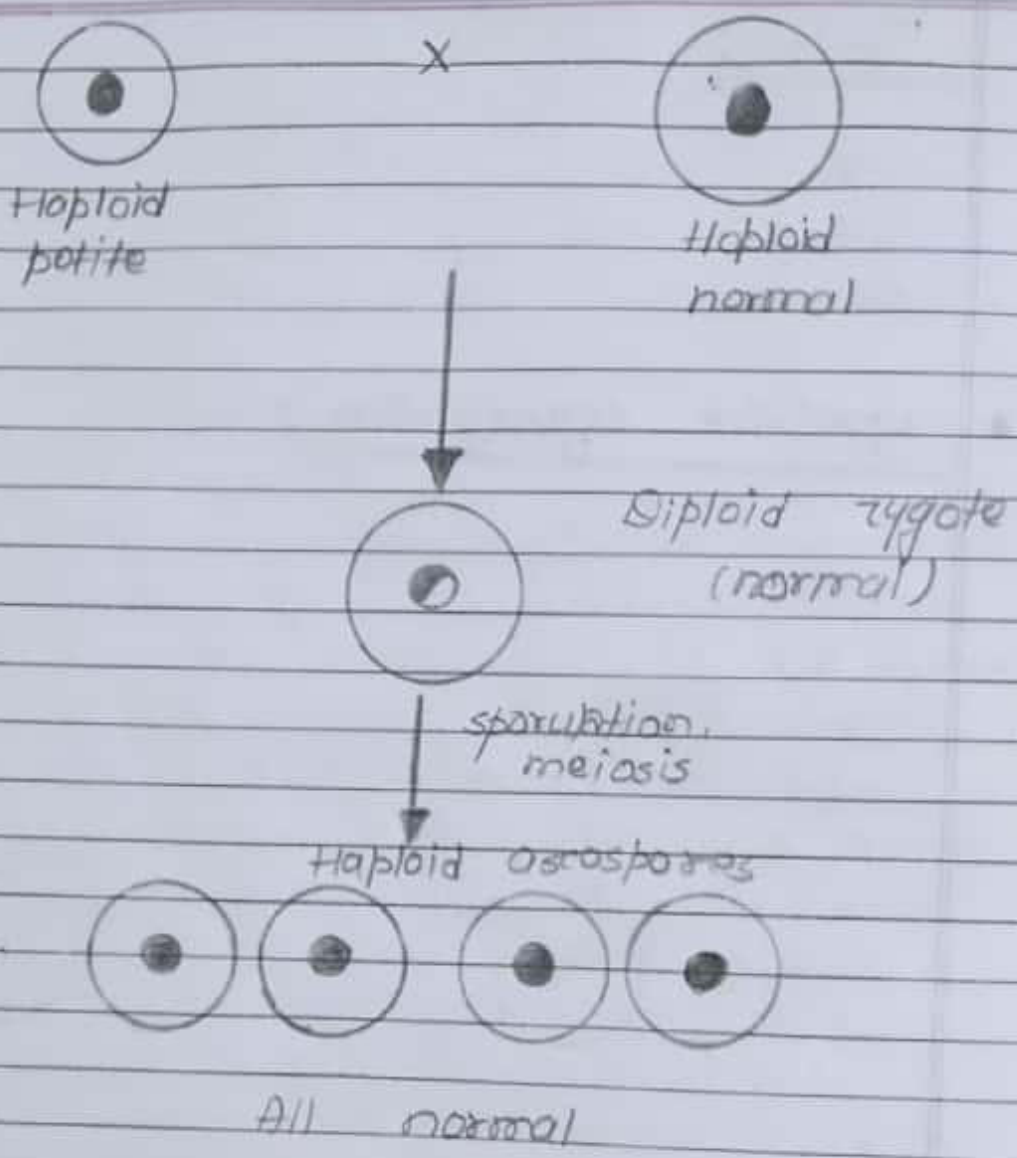 X
Haploid
petite
Haploid
normal
Diploid zygote
(normal)
sporulation,
meiosis
Haploid ascospores
All normal